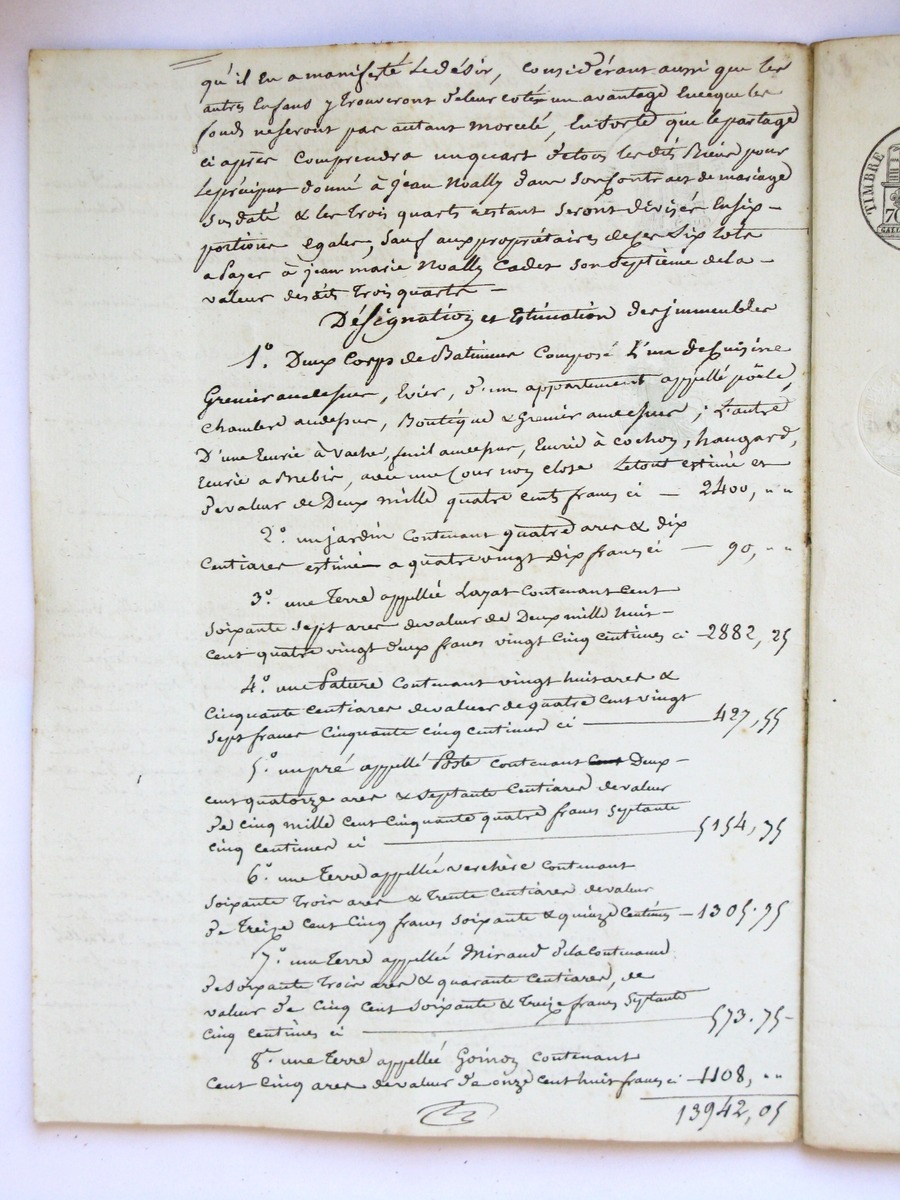 qu'il En a manifesté Le désir, considérant aussi que les
autres Enfans y trouveront de leur coté un avantage En ce que les
fonds ne seront pas autant morcelé, En sorte que le partage
ci après comprendra un quart de tous les dits Biens pour
Le préciput donné à jean Noally dans son Contract de mariage
sus daté & les trois quarts restant seront divisés En six -
portions egales, sauf aux propriétaires de ces six lots
a Payer à jean marie Noally Cadet son septième de la -
valeur des dits trois quarts -
Désignation et Estimation des jmmeubles
1°. Deux Corps de Batimens Composé L'un de Cuisine
Grenier au dessus, Evier, d'un appartement appellé poële,
chambre au dessus, Boutique & Grenier au dessus ; L'autre
D'une Ecurie à Vache, fenil au dessus, Ecurie à cochon, hangard,
Ecurie a Brebis, avec une Cour non close Le tout estimé et
de valeur de Deux mille quatre cents francs ci — 2400, " "
2° un jardin contenant quatre ares & dix
Centiares estimé a quatre vingt Dix francs ci — 90, " "
3° une Terre appellée Layat Contenant Cent
soixante sept ares de valeur de Deux mille huit -
cent quatre vingt deux francs vingt Cinq Centimes ci - 2882, 25
4° une Pature Contenant vingt huit ares &
Cinquante Centiares de valeur de quatre Cent vingt
sept francs Cinquante cinq Centimes ci — 427, 55
5° un pré appellé Poste contenant Cent Deux -
cent quatorze ares & septante Centiares de valeur
de Cinq mille Cent Cinquante quatre francs septante
cinq centimes ci — 5154, 75
6° une Terre appellée verchère Contenant
soixante Trois ares & Trente Centiares de valeur
de Treize Cent Cinq francs soixante & quinze Centimes — 1305. 75
7° une Terre appellée Miraud de la Contenance
de soixante Trois ares & quarante Centiares, de
valeur de Cinq Cent soixante & treize francs septante
Cinq Centimes ci — 573. 75 -
8° une Terre appellée Goinoz Contenant
Cent Cinq ares de valeur de onze cent huit francs ci — 1108, " "
13942, 05
TIMBRE
70